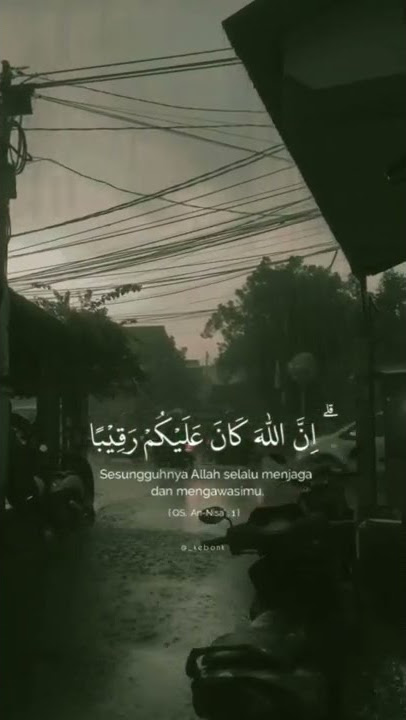 اِنَّ اللّٰهَ كَانَ عَلَيْكُمْ رَقِيْبًا ۗ
Sesungguhnya Allah selalu menjaga
dan mengawasimu.
[ QS. An-Nisa : 1 ]
@_kebonk